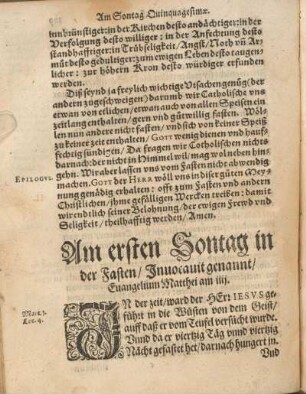 Am Sontag Quinquagesimæ.
inn brünstiger: in der Kirchen desto andächtiger: in der
Verfolgung desto williger: in der Anfechtung desto
standhafftiger: in Trübseligkeit / Angst / Noth vñ Ar-
mut desto gedultiger: zum ewigen Leben desto taugen-
licher: zur höhern Kron desto würdiger erfunden
werden.
Diß seynd ja freylich wichtige Ursachen genůg (der
andern zugeschweigen) darumb wir Catholische uns
etwan von etlichen / etwan auch von allen Speisen ein
zeitlang enthalten / gern und gůtwillig fasten. Wöl-
len nun andere nicht fasten / und sich von keiner Speiß
zu keiner zeit enthalten / GOTT wenig dienen und hauf-
fechtig sündigen / Da fragen wir Catholischen nichts
darnach: der nicht in Himmel wil / mag wol neben hin
gehn. Wir aber lassen uns vom Fasten nicht abwendig
EPILOGVS.
machen. GOTT der HERR wöll uns in diser gůten Mey-
nung genädig erhalten: offt zum Fasten und andern
Christlichen / ihme gefälligen Wercken treiben: damit
wir endlich seiner Belohnung / der ewigen Frewd und
Seligkeit / theilhafftig werden / Amen.
Am ersten Sontag in
der Fasten / Invocavit genannt /
Evangelium Matthei am iiij.
Marc. 1.
Luc. 4.
IN der zeit / ward der HErr IESVS ge-
führt in die Wüsten von dem Geist /
auff daß er vom Teufel versůcht wurde.
Unnd da er viertzig Tag unnd viertzig
Nächt gefastet het / darnach hungert in.
Und